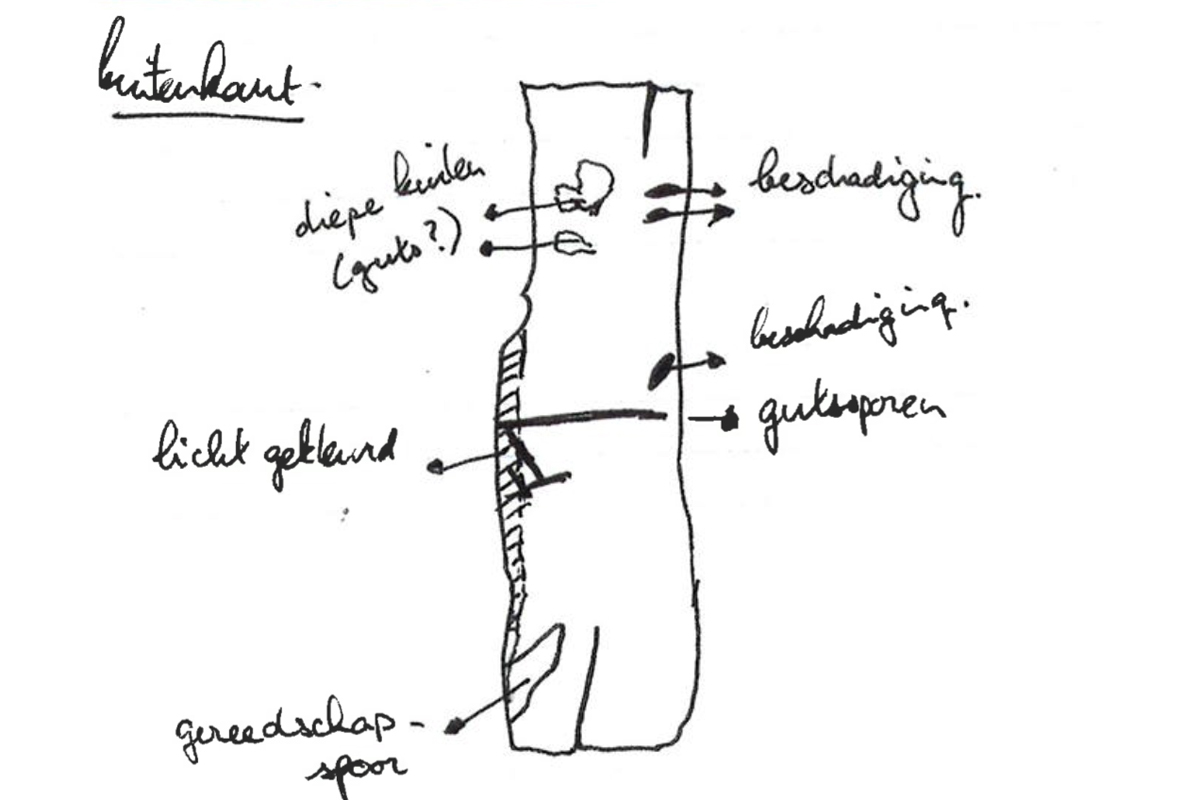 buitenkant.
diepe kuilen
(guts?)
beschadiging.
beschadiging.
gutssporen
licht gekleurd
gereedschap-
spoor